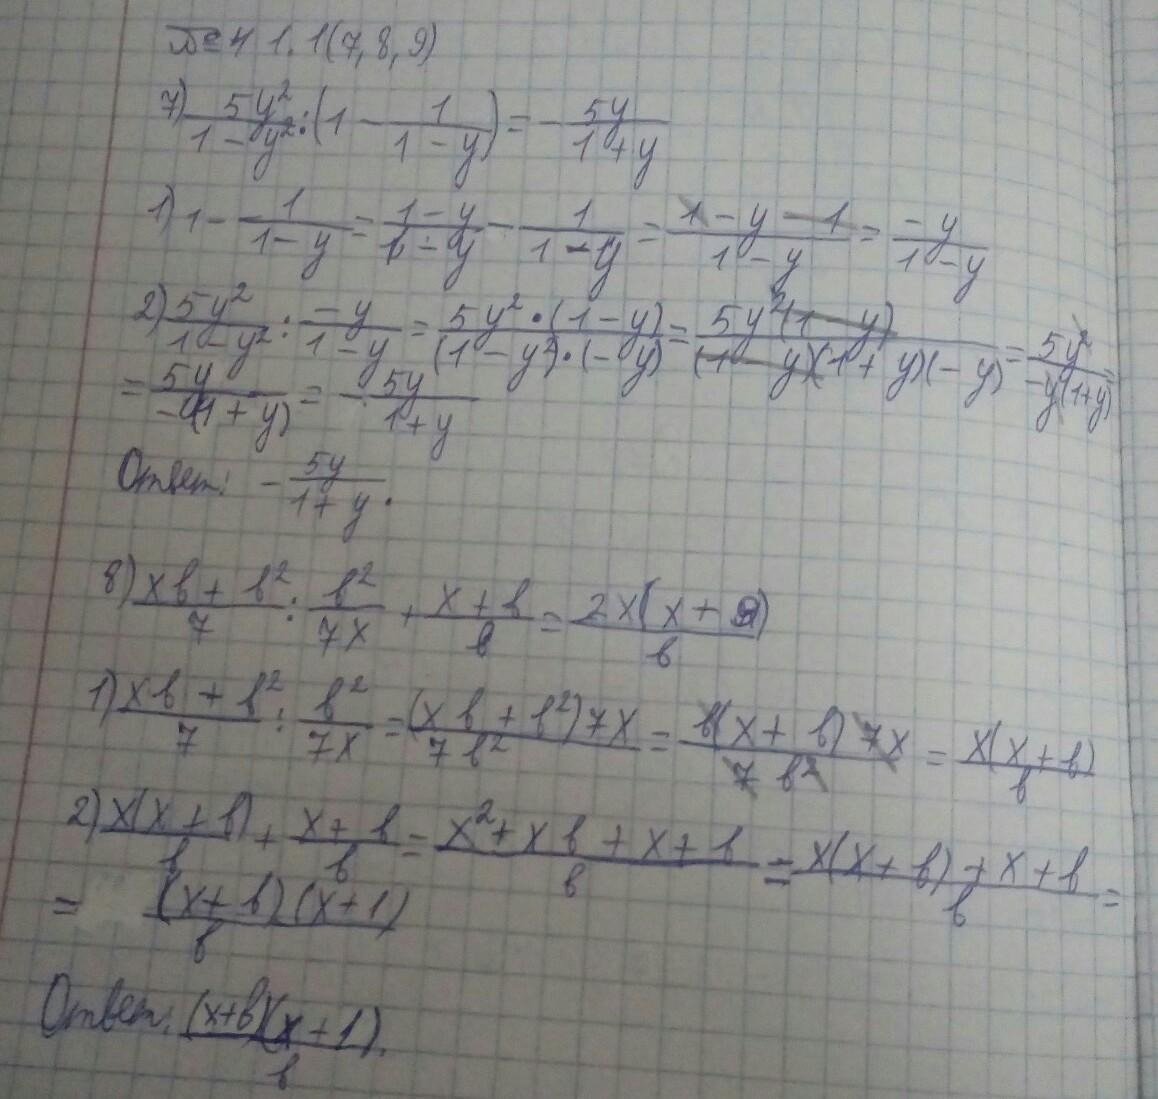 № 41.1(7,8,9)
7) 5y²/(1-y²) : (1 - 1/(1-y)) = - 5y/(1+y)
1) 1 - 1/(1-y) = (1-y)/(1-y) - 1/(1-y) = (1-y-1)/(1-y) = -y/(1-y)
2) 5y²/(1-y²) : -y/(1-y) = 5y²·(1-y)/((1-y²)·(-y)) = 5y²(1-y)/((1-y)(1+y)(-y)) = 5y²/(-y(1+y)) =
= 5y/(-(1+y)) = - 5y/(1+y)
Ответ: - 5y/(1+y).
8) (xв+в²)/7 : в²/7x + (x+в)/в = 2x(x+в)/в
1) (xв+в²)/7 : в²/7x = (xв+в²)7x/7в² = в(x+в)7x/7в² = x(x+в)/в
2) x(x+в)/в + (x+в)/в = (x²+xв+x+в)/в = (x(x+в)+x+в)/в =
= (x+в)(x+1)/в
Ответ: (x+в)(x+1)/в.